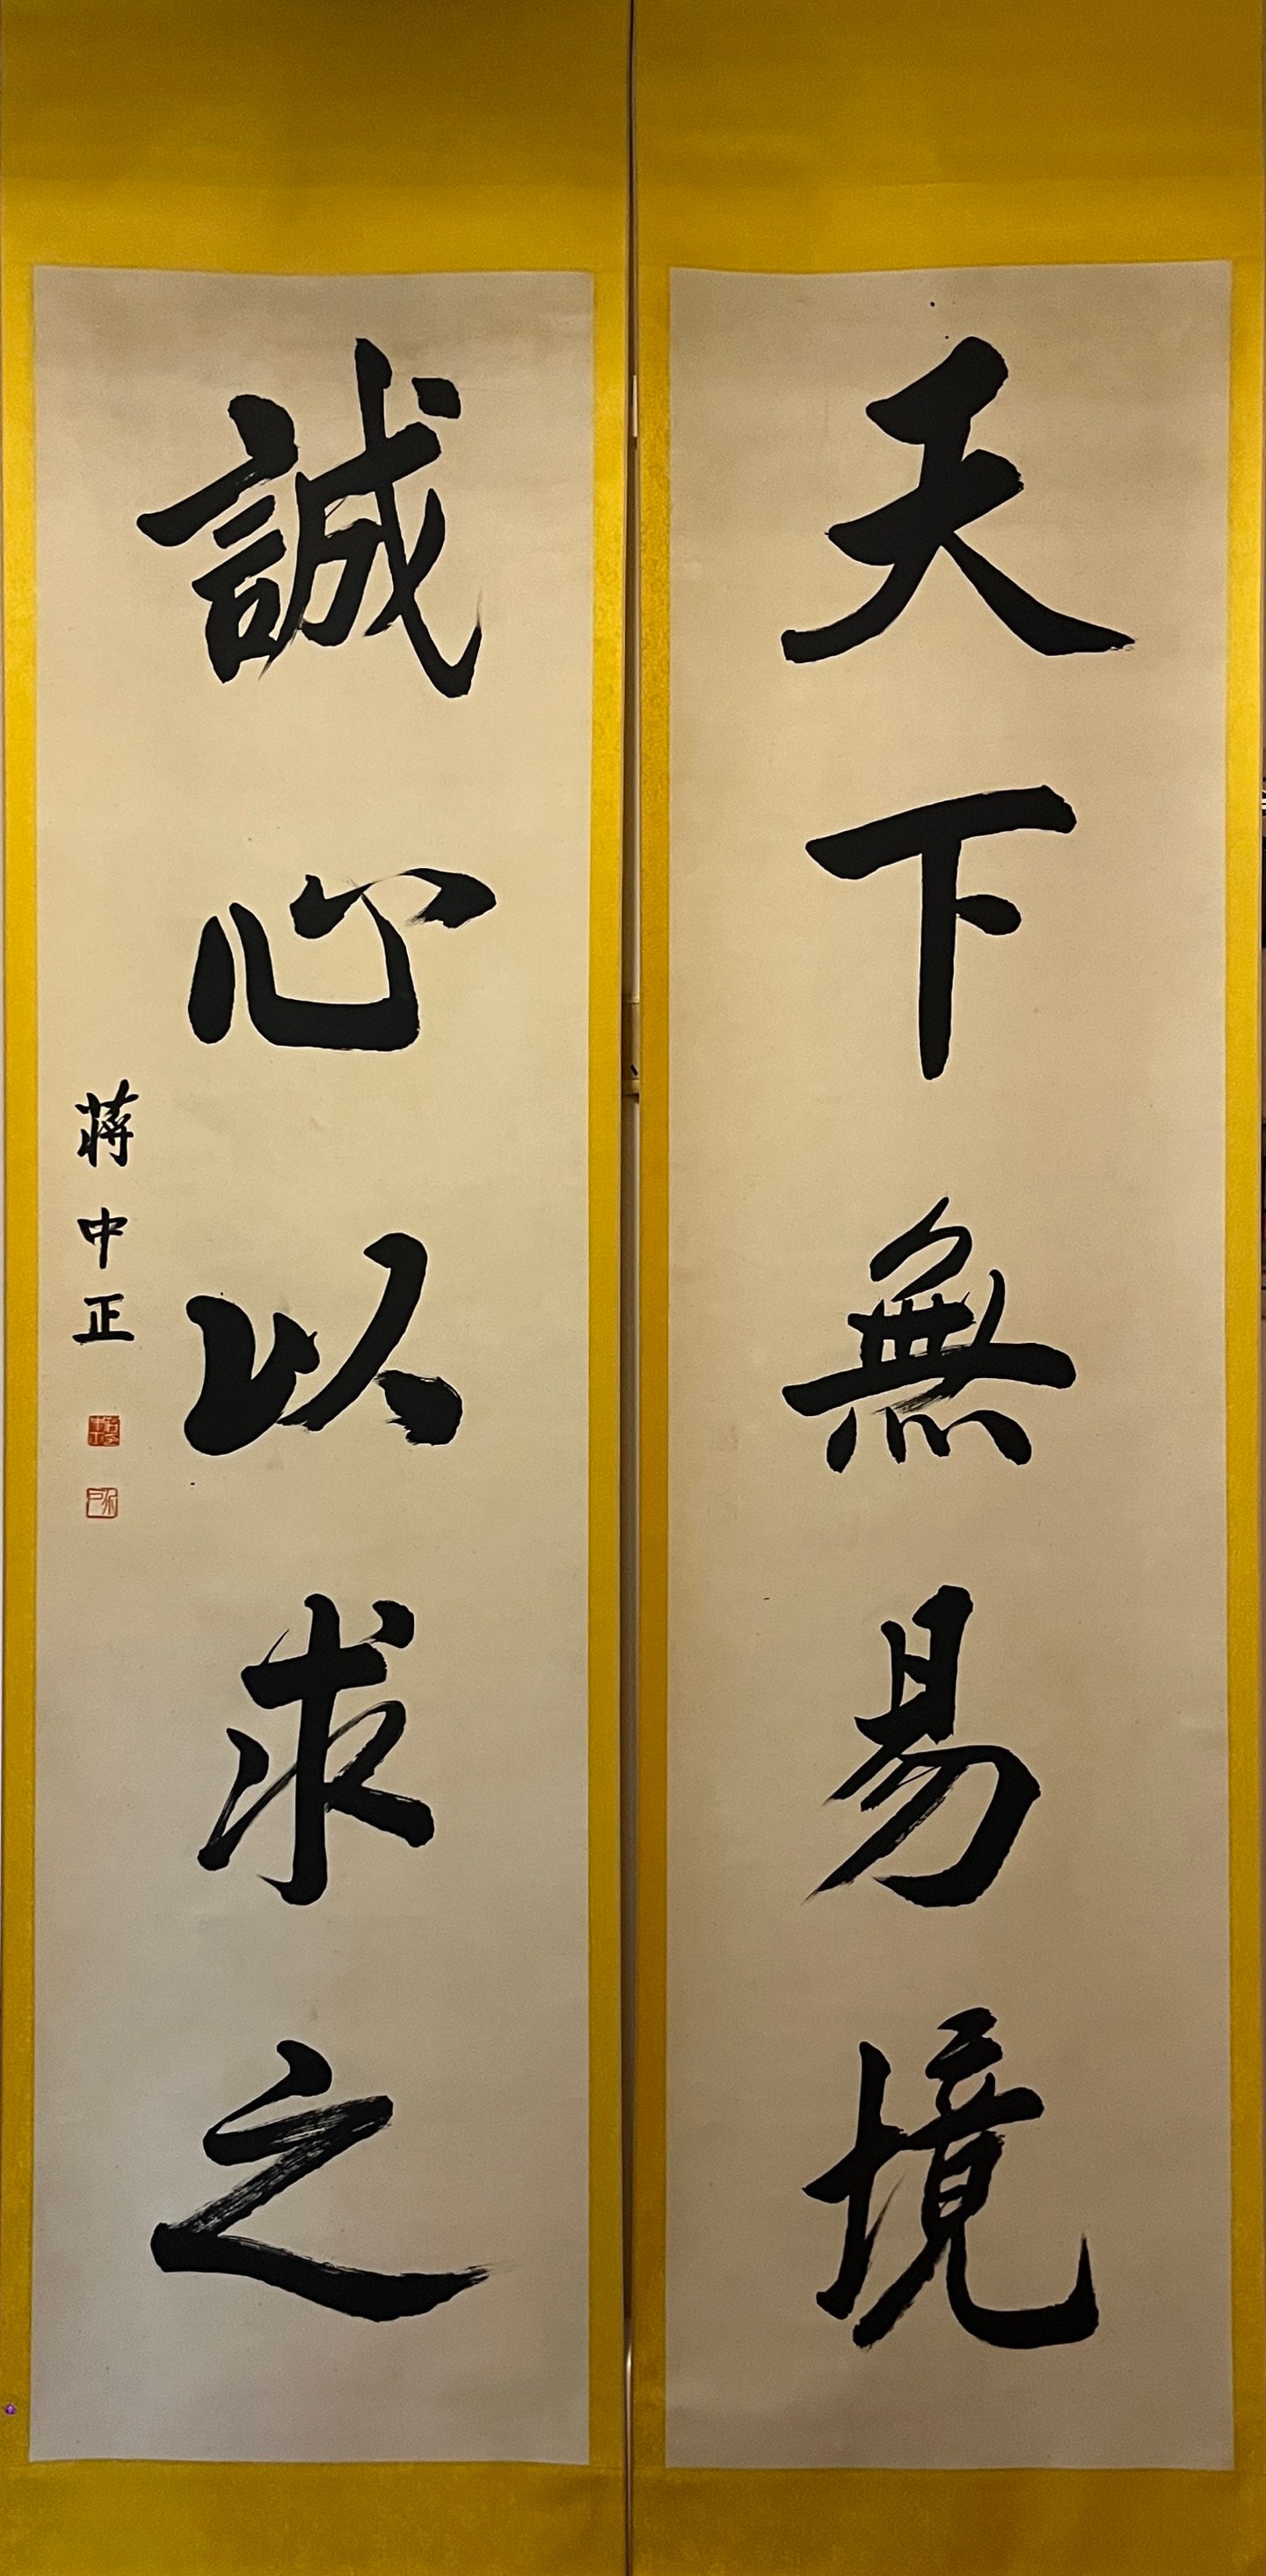 天下無易境
誠心以求之
蔣中正